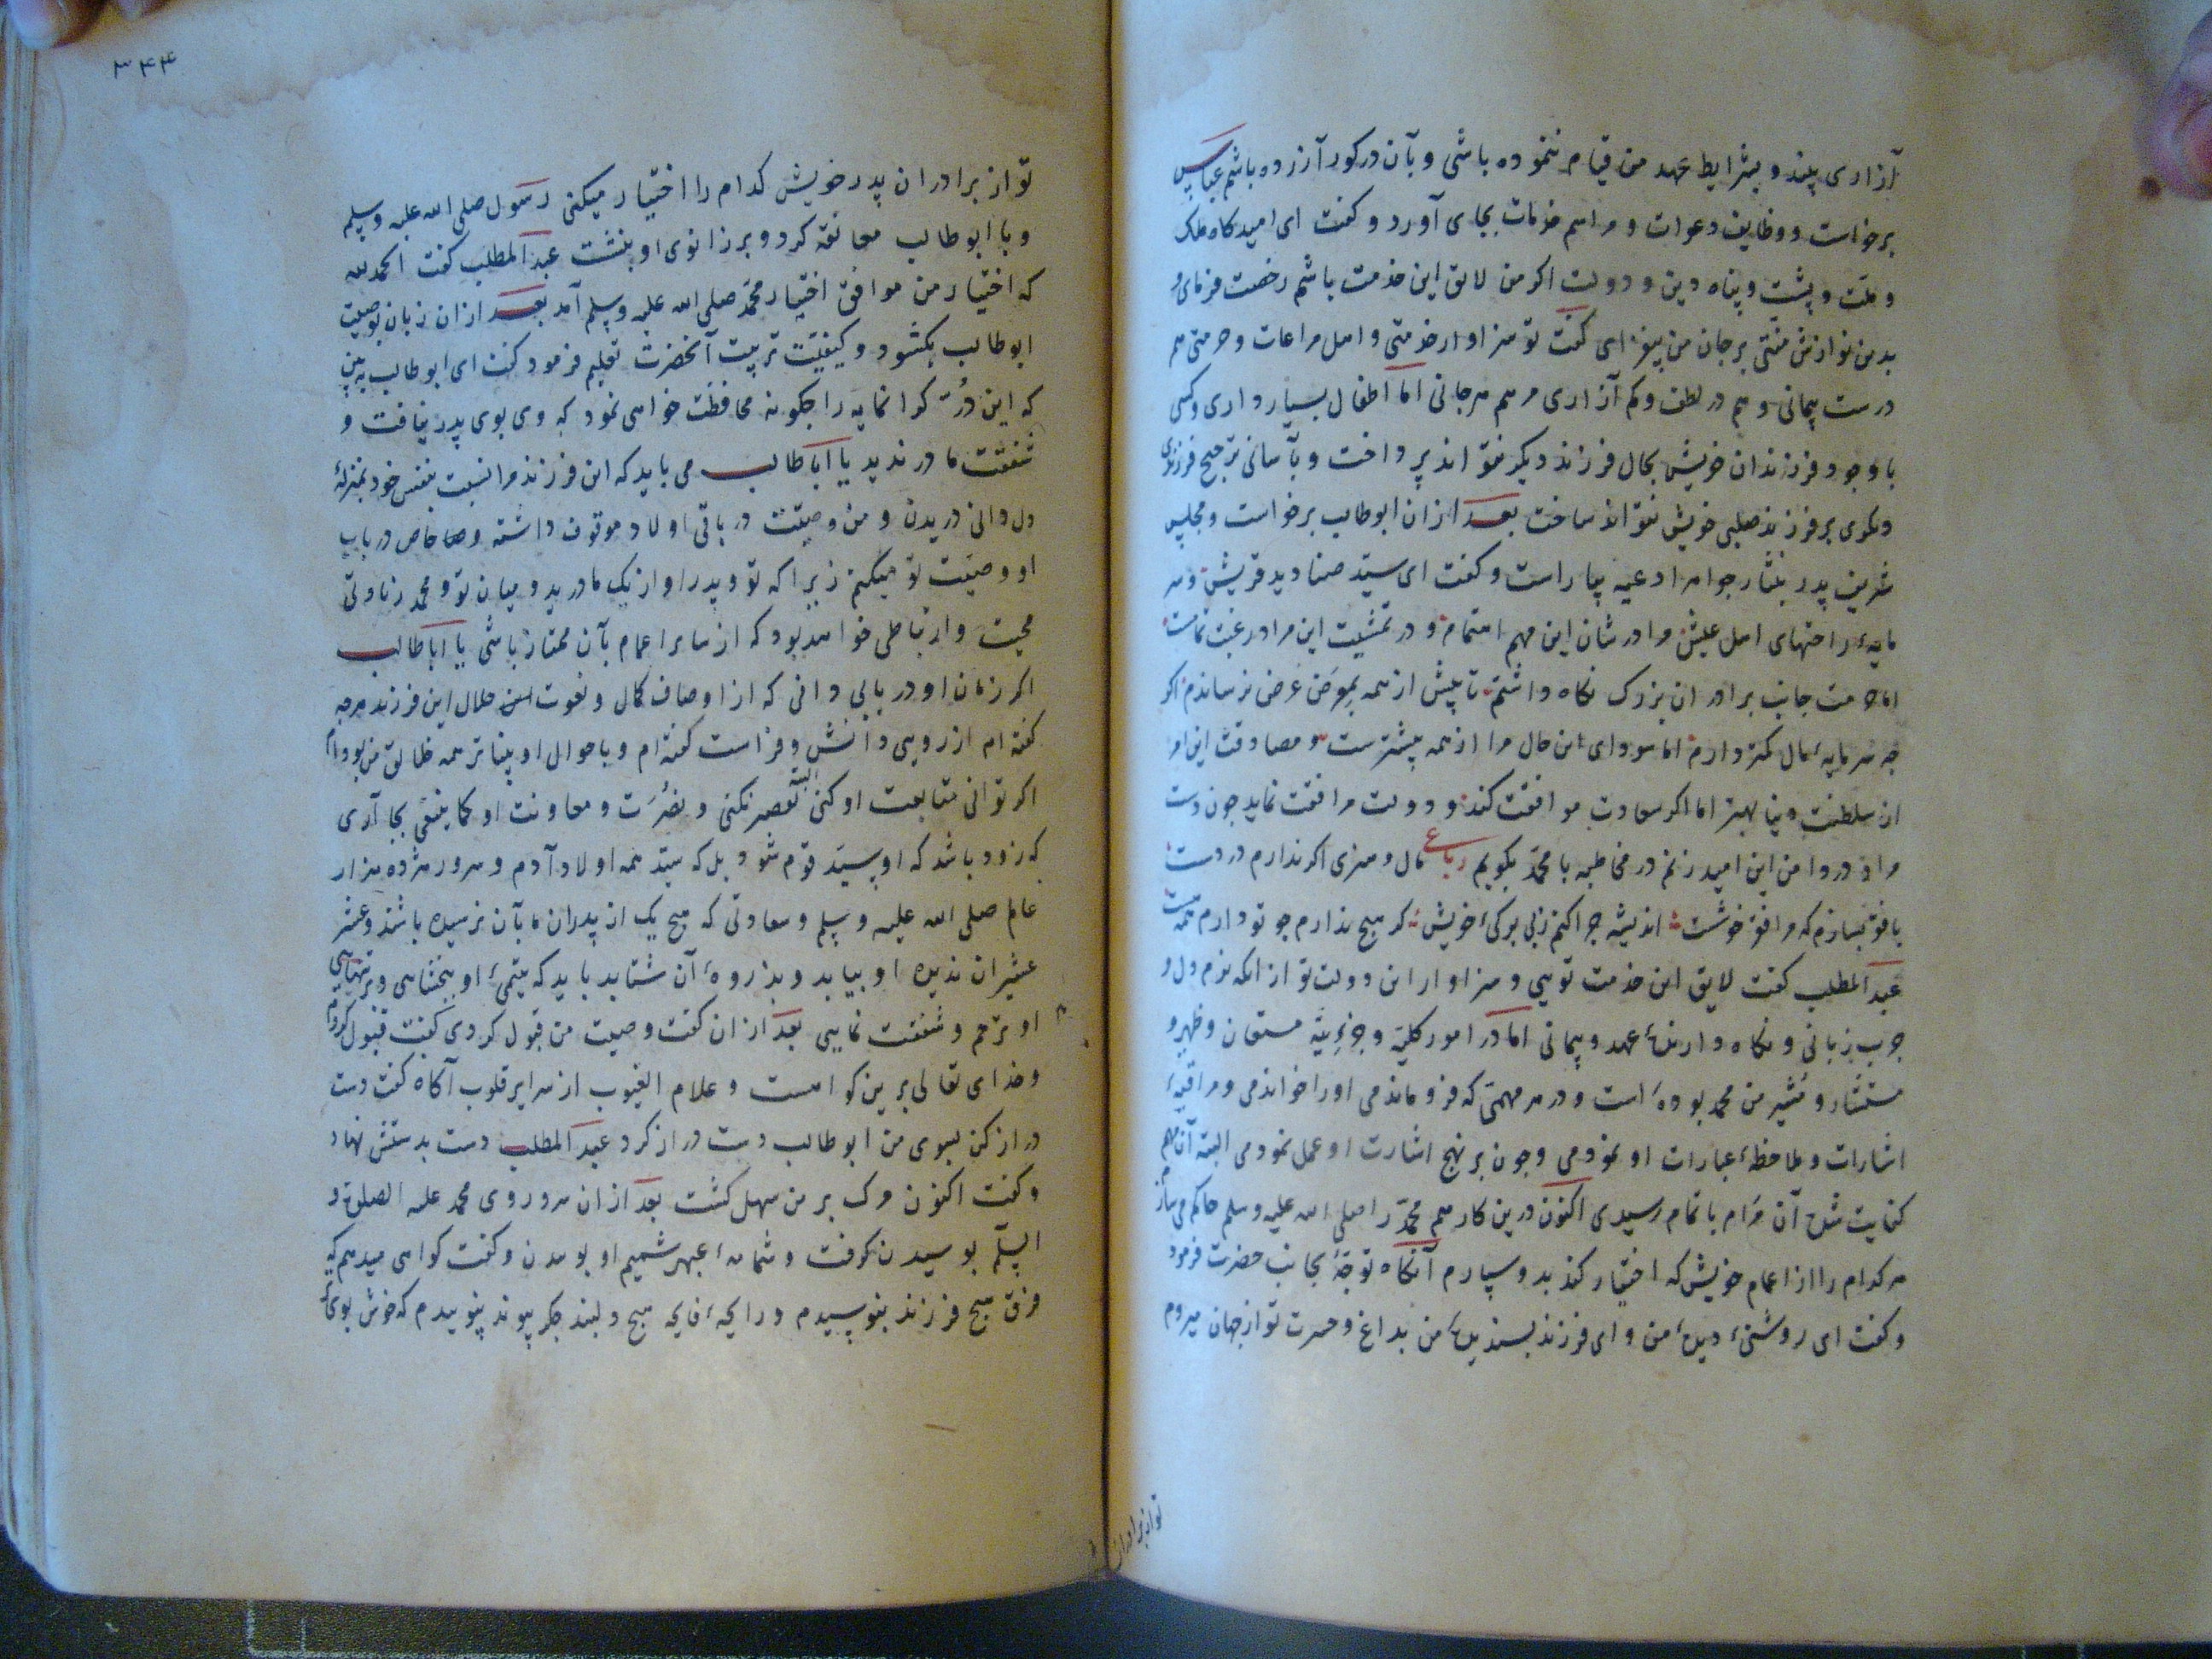 آزاری بیند و بشرایط عهد من قیام ننموده باشی و بآن در کور آزرده باشم عباس
برخاست و وظایف دعوات و مراسم خدمات بجای آورد و کفت ای امید کاه ملک
و ملت و پشت و پناه دین و دولت اکر من لایق این خدمت باشم رخصت فرمای و
بدین نوازش منتی بر جان من بیفزای کفت تو سزاوار خدمتی و اهل مراعات و حرمتی هم
درست پیمانی و هم در لطف و کم آزاری مرهم هر جانی اما اطفال بسیار داری و کسی
با وجود فرزندان خویش بحال فرزند دیکر نتواند پرداخت و بآسانی ترجیح فرزندی
دیکری بر فرزند صلبی خویش نتواند ساخت بعد ازان ابوطالب برخواست و مجلس
شریف پدر بنثار جواهر ادعیه بیاراست و کفت ای سید صنادید قریش و سر
مایهٔ راحتهای اهل عیش مرا در شان این مهم اهتمام و در تمشیت این مراد رغبت تمامست
اما حرمت جانب برادران بزرک نکاه داشتم تا پیش از همه بمعرض عرض نرساندم اکر
چه سرمایهٔ مال کمتر دارم اما سودای این حال مرا از همه بیشترست و مصادقت این امر
از سلطنت دنیا بهتر اما اکر سعادت موافقت کند و دولت مرافقت نماید چون دست
مراد در دامن این امید زنم در مخاطبه با محمد بکویم رباعی مال و سزی اکر ندارم در دست
با فقر بسازم که مرا فقر خوشست اندیشه چرا کنم ز بی برکی خویش کر هیچ ندارم چو تو دارم همه هست
عبدالمطلب کفت لایق این خدمت تویی و سزاوار این دولت تو از انکه نرم دل و
چرب زبانی و نکاه دارندهٔ عهد و پیمانی اما در امور کلیّه و جزئیّه مستعان و ظهیر و
مستشار و مشیر من محمد بوده است و در هر مهمّی که فرو ماندمی او را خواندمی و مراقبهٔ
اشارات و ملاحظهٔ عبارات او نمودمی و چون بر نهج اشارت او عمل نمودمی البته آن مهم
کفایت شدی آن مرام باتمام رسیدی اکنون درین کار هم محمد را صلی الله علیه و سلم حاکم می سازم
هر کدام را از اعمام خویش که اختیار کند بدو سپارم آنکاه توجه بجانب حضرت فرمود
و کفت ای روشنی دیدهٔ من و ای فرزند پسندیدهٔ من بداغ و حسرت تو از جهان میروم
تو از برادران
۳۴۴
تو از برادران پدر خویش کدام را اختیار میکنی رسول صلی الله علیه و سلم
و با ابوطالب معانقه کرد و بر زانوی او بنشست عبدالمطلب کفت الحمد لله
که اختیار من موافق اختیار محمد صلی الله علیه و سلم آمد بعد ازان زبان بوصیت
ابوطالب بکشود و کیفیّت تربیت آنحضرت تعلیم فرمود کفت ای ابوطالب به بین
که این دُرّ کرانمایه را چکونه محافظت خواهی نمود که وی بوی پدر نیافت و
شفقت مادر ندید یا اباطالب می باید که این فرزند مرا نسبت بنفس خود بمنزلهٔ
دل دانی در بدن و من وصیّت در باقی اولاد موقوف داشته وصا خاص در باب
او وصیّت تو میکنم زیرا که تو و پدر او از یک مادرید و میان تو و محمد زیادتی
محبت و ارتباطی خواهد بود که از سایر اعمام بآن ممتاز باشی یا اباطالب
اکر زمان او دریابی دانی که از اوصاف کمال و نعوت جلال این فرزند هر چه
کفته ام از روی دانش و فراست کفته ام و باحوال او بیناتر همه خلایق من بوده ام
اکر توانی متابعت او کنی البته تقصیر نکنی و نصرت و معاونت او کما ینبغی بجا آری
که زود باشد که او سید قوم شود بل که سید همه اولاد آدم و سرور هژده هزار
عالم صلی الله علیه و سلم و سعادتی که هیچ یک از پدران ما بآن نرسیده باشند و عشر
عشیر ان ندیده او بیابد و بذروهٔ آن شتابد باید که یتیمی او ببخشایی و بر تنهایی
او ترحم و شفقت نمایی بعد ازان کفت وصیت من قبول کردی کفت قبول کردم
و خدای تعالی برین کواهست و علام الغیوب از سرایر قلوب آکاه کفت دست
دراز کن بسوی من ابوطالب دست دراز کرد عبدالمطلب دست بدستش نهاد
و کفت اکنون مرک بر من سهل کشت بعد ازان سر و روی محمد علیه الصلوة و
السلم بوسیدن کرفت و شمامهٔ عبهر شمیم او بوییدن و کفت کواهی میدهم که
فرق هیچ فرزند نبوسیدم و رایحهٔ فایحه هیچ دلبند جکر پیوند نبوییدم که خوش بوی تر